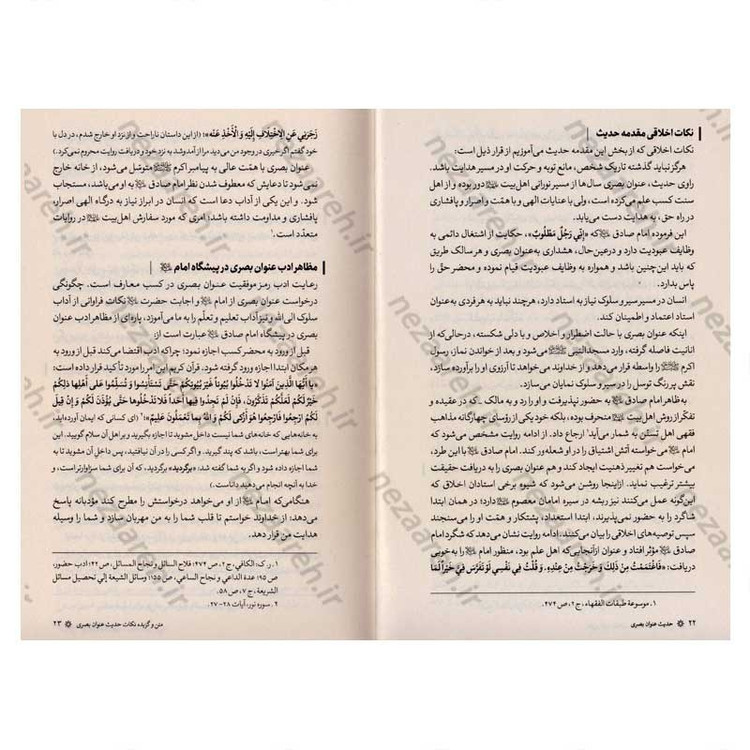 نکات اخلاقی مقدمه حدیث
نکات اخلاقی که از بخش این مقدمه حدیث می‌آموزیم از قرار ذیل است:
هرگز نباید گذشته تاریک شخص، مانع توبه و حرکت او در مسیر هدایت باشد.
راوی حدیث، عنوان بصری سال‌ها از مسیر نورانی اهل‌بیت دور بوده و از اهل
سنت کسب علم می‌کرده است، ولی با عنایات الهی و با همّت و اصرار و پافشاری
در راه حق، به هدایت دست می‌یابد.
این فرموده امام صادق که «إِنِّي رَجُلٌ مَطْلُوبٌ»، حکایت از اشتغال دائمی به
وظایف عبودیت دارد و درعین‌حال، هشداری به‌عنوان بصری و هر سالک طریق
که باید این‌چنین باشد و همواره به وظایف عبودیت قیام نموده و محضر حق را
پاس بدارد.
انسان در مسیر سیر و سلوک نیاز به استاد دارد، هرچند نباید به هر فردی به‌عنوان
استاد اعتماد و اطمینان کند.
اینکه عنوان بصری با حالت اضطرار و اخلاص و با دلی شکسته، درحالی‌که از
انانیت فاصله گرفته، وارد مسجدالنبی می‌شود و بعد از خواندن نماز، رسول
اکرم را واسطه قرار می‌دهد و از خداوند می‌خواهد تا آرزوی او را برآورده سازد،
نقش پررنگ توسل را در سیر و سلوک نمایان می‌سازد.
به‌ظاهر امام صادق به حضور نپذیرفت و او را رد و به مالک ـ که در عقیده و
تفکّر از روش اهل‌بیت منحرف بوده، بلکه خود یکی از رؤسای چهارگانه مذاهب
فقهی اهل تسنّن به شمار می‌آید ارجاع داد. از ادامه روایت مشخص می‌شود که
امام می‌خواسته آتش اشتیاق را در او شعله‌ور کند. امام صادق با این طرد،
می‌خواست هم تغییر ذهنیت ایجاد کند و هم عنوان بصری را به دریافت حقیقت
بیشتر ترغیب نماید. ازاینجا روشن می‌شود که شیوه برخی استادان اخلاق که
این‌گونه عمل می‌کنند نیز ریشه در سیره امامان معصوم دارد؛ در همان ابتدا
شاگرد را به حضور نمی‌پذیرند، ابتدا استعداد، پشتکار و همّت او را می‌سنجند
سپس توصیه‌های اخلاقی را بیان می‌کنند. ادامه روایت نشان می‌دهد که شگرد امام
صادق مؤثر افتاد و عنوان ازآنجایی‌که اهل علم بود، منظور امام را به‌خوبی
دریافت: «فَاغْتَمَمْتُ مِنْ ذَلِكَ وَ خَرَجْتُ مِنْ عِنْدِهِ. وَ قُلْتُ فِي نَفْسِي لَوْ تَفَرَّسَ فِيَّ خَيْراً لَمَا
۱. موسوعة طبقات الفقهاء، ج۲، ص۴۷۴.
۲۲ حدیث عنوان بصری
زَجَرَنِي عَنِ الِاخْتِلَافِ إِلَيْهِ وَ الْأَخْذِ عَنْهُ»؛ (از این داستان ناراحت و از نزد او خارج شدم، در دل با
خود گفتم اگر خیری در وجود من می‌دید مرا از آمدوشد به نزد خود و دریافت روایت محروم نمی‌کرد.)
عنوان بصری با همّت عالی به پیامبر اکرم متوسّل می‌شود، از خانه خارج
نمی‌شود تا دعایش که معطوف شدن نظر امام صادق به او می‌باشد، مستجاب
شود. و این یکی از آداب دعا است که انسان در ابراز نیاز به درگاه الهی اصرار،
پافشاری و مداومت داشته باشد؛ امری که مورد سفارش اهل‌بیت در روایات
متعدّد است.۱
مظاهر ادب عنوان بصری در پیشگاه امام
رعایت ادب رمز موفقیت عنوان بصری در کسب معارف است. چگونگی
درخواست عنوان بصری از امام و اجابت حضرت نکات فراوانی از آداب
سلوک الی الله و نیز آداب تعلیم و تعلّم را به ما می‌آموزد، پاره‌ای از مظاهر ادب عنوان
بصری در پیشگاه امام صادق عبارت است از:
قبل از ورود به محضر کسب اجازه نمود: چراکه ادب اقتضا می‌کند قبل از ورود به
هر مکان ابتدا اجازه ورود گرفته شود. قرآن کریم این امر را مورد تأکید قرار داده است:
«يا أَيُّهَا الَّذِينَ آمَنُوا لا تَدْخُلُوا بُيُوتاً غَيْرَ بُيُوتِكُمْ حَتَّى تَسْتَأْنِسُوا وَ تُسَلِّمُوا عَلى أَهْلِها ذلِكُمْ
خَيْرٌ لَكُمْ لَعَلَّكُمْ تَذَكَّرُونَ، فَإِنْ لَمْ تَجِدُوا فِيها أَحَداً فَلا تَدْخُلُوها حَتَّى يُؤْذَنَ لَكُمْ وَ إِنْ قِيلَ
لَكُمُ ارْجِعُوا فَارْجِعُوا هُوَ أَزْكى لَكُمْ وَ اللَّهُ بِما تَعْمَلُونَ عَلِيمٌ»؛۲ (ای کسانی که ایمان آورده‌اید،
به خانه‌هایی که خانه‌های شما نیست داخل مشوید تا اجازه بگیرید و بر اهل آن سلام گویید. این
برای شما بهتر است، باشد که پند گیرید. و اگر کسی را در آن نیافتید، پس داخل آن مشوید تا به
شما اجازه داده شود و اگر به شما گفته شد: «برگردید» برگردید، که آن برای شما سزاوارتر است، و
خدا به آنچه انجام می‌دهید داناست.)
هنگامی‌که امام از او می‌خواهد درخواستش را مطرح کند مؤدبانه پاسخ
می‌دهد: از خداوند خواستم تا قلب شما را به من مهربان سازد و شما را وسیله
هدایت من قرار دهد.
۱. ر.ک: الکافي، ج۲، ص۴۷۴؛ فلاح السائل و نجاح المسائل، ص۴۲؛ ادب حضور،
ص۹۵؛ عدة الداعي و نجاح الساعي، ص۱۵۵؛ وسائل الشیعة إلي تحصیل مسائل
الشریعة، ج۷، ص۵۸.
۲. سوره نور، آیات ۲۸-۲۷.
متن و گزیده نکات حدیث عنوان بصری ۲۳
nezaareh.ir